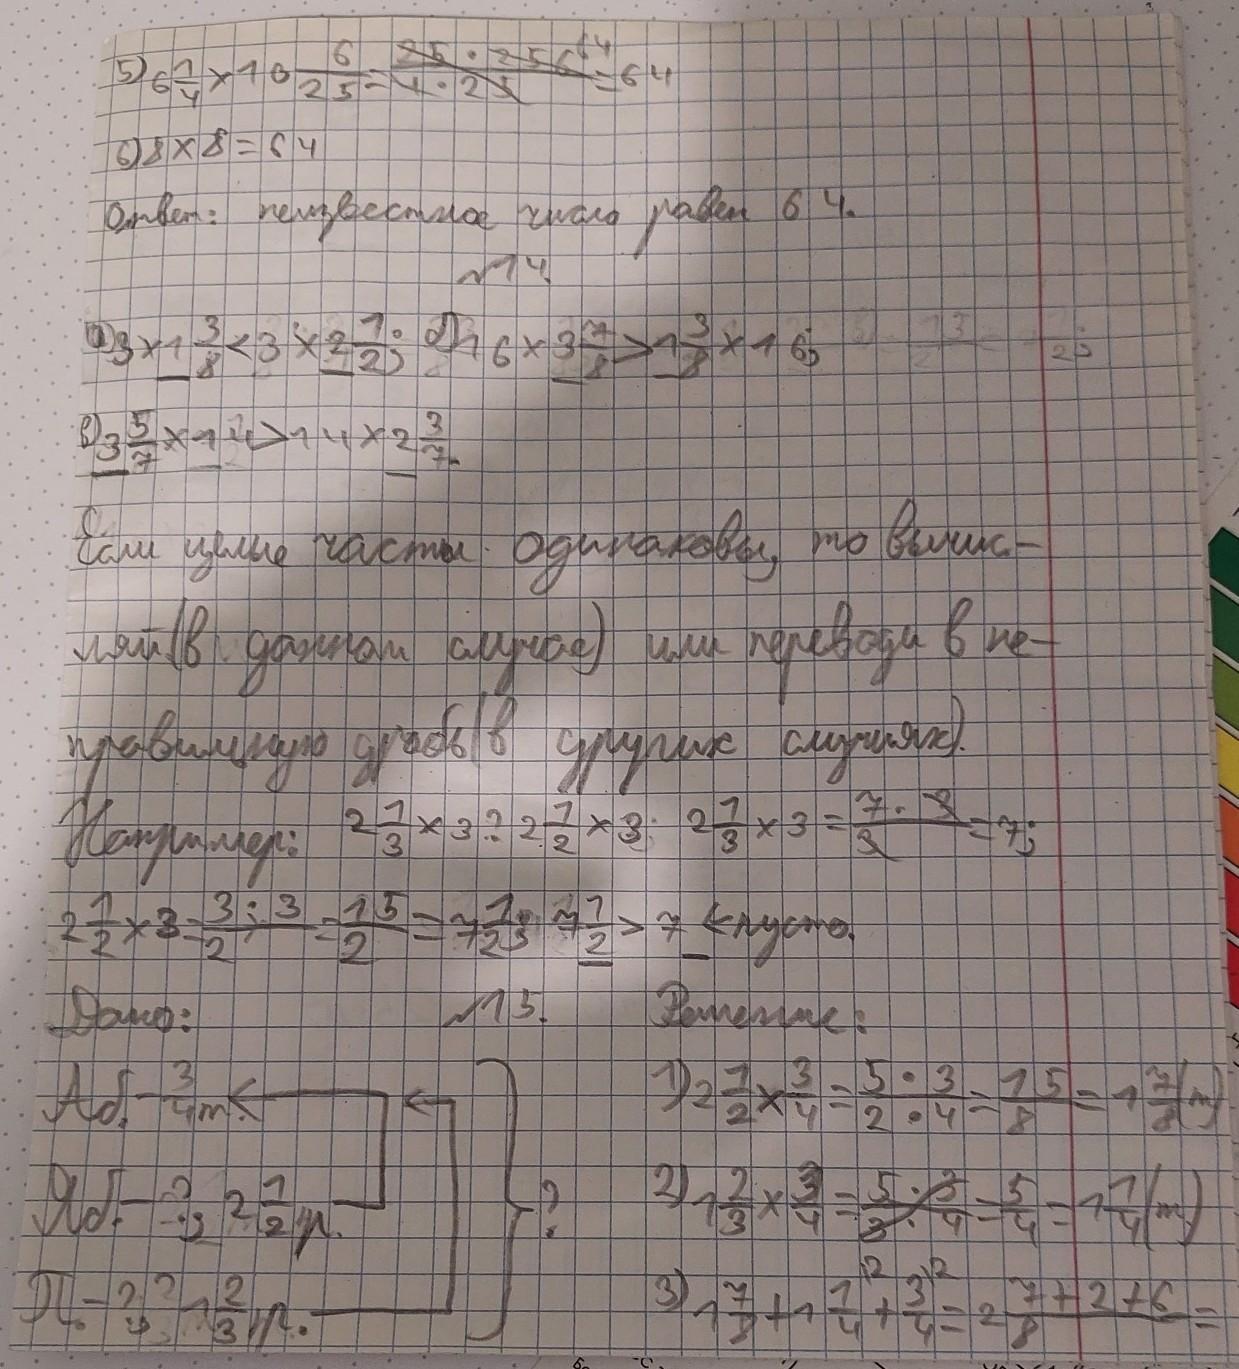 5) 6 1/4 × 10 6/25 = 25 · 256 64 / 4 · 25 = 64
6) 8 × 8 = 64
Ответ: неизвестное число равен 64.
№14.
а) 3 × 1 3/8 < 3 × 2 1/2; б) 16 × 3 7/8 > 1 3/8 × 16;
в) 3 5/7 × 14 > 14 × 2 3/7.
Если целые части одинаковы, то вычис-
ляй (в данном случае) или переводи в не-
правильную дробь (в других случаях).
Например: 2 1/3 × 3 ? 2 1/2 × 3; 2 1/3 × 3 = 7 · 3 / 3 = 7;
2 1/2 × 3 = / 2 = 15/2 = 7 1/2; 7 1/2 > 7 < пусто.
Дано: №15. Решение:
Аб. – 3/4 т. 1) 2 1/2 × 3/4 = 5 · 3 / 2 · 4 = 15/8 = 1 7/8 (т)
Яб. – ? 2 1/2 р. ? 2) 1 2/3 × 3/4 = 5 · 3 / 3 · 4 = 5/4 = 1 1/4 (т)
П. – ? 1 2/3 р. 3) 1 7/8 + 1 1/4 2 + 3/4 2 = 2 7 + 2 + 6 / 8 =